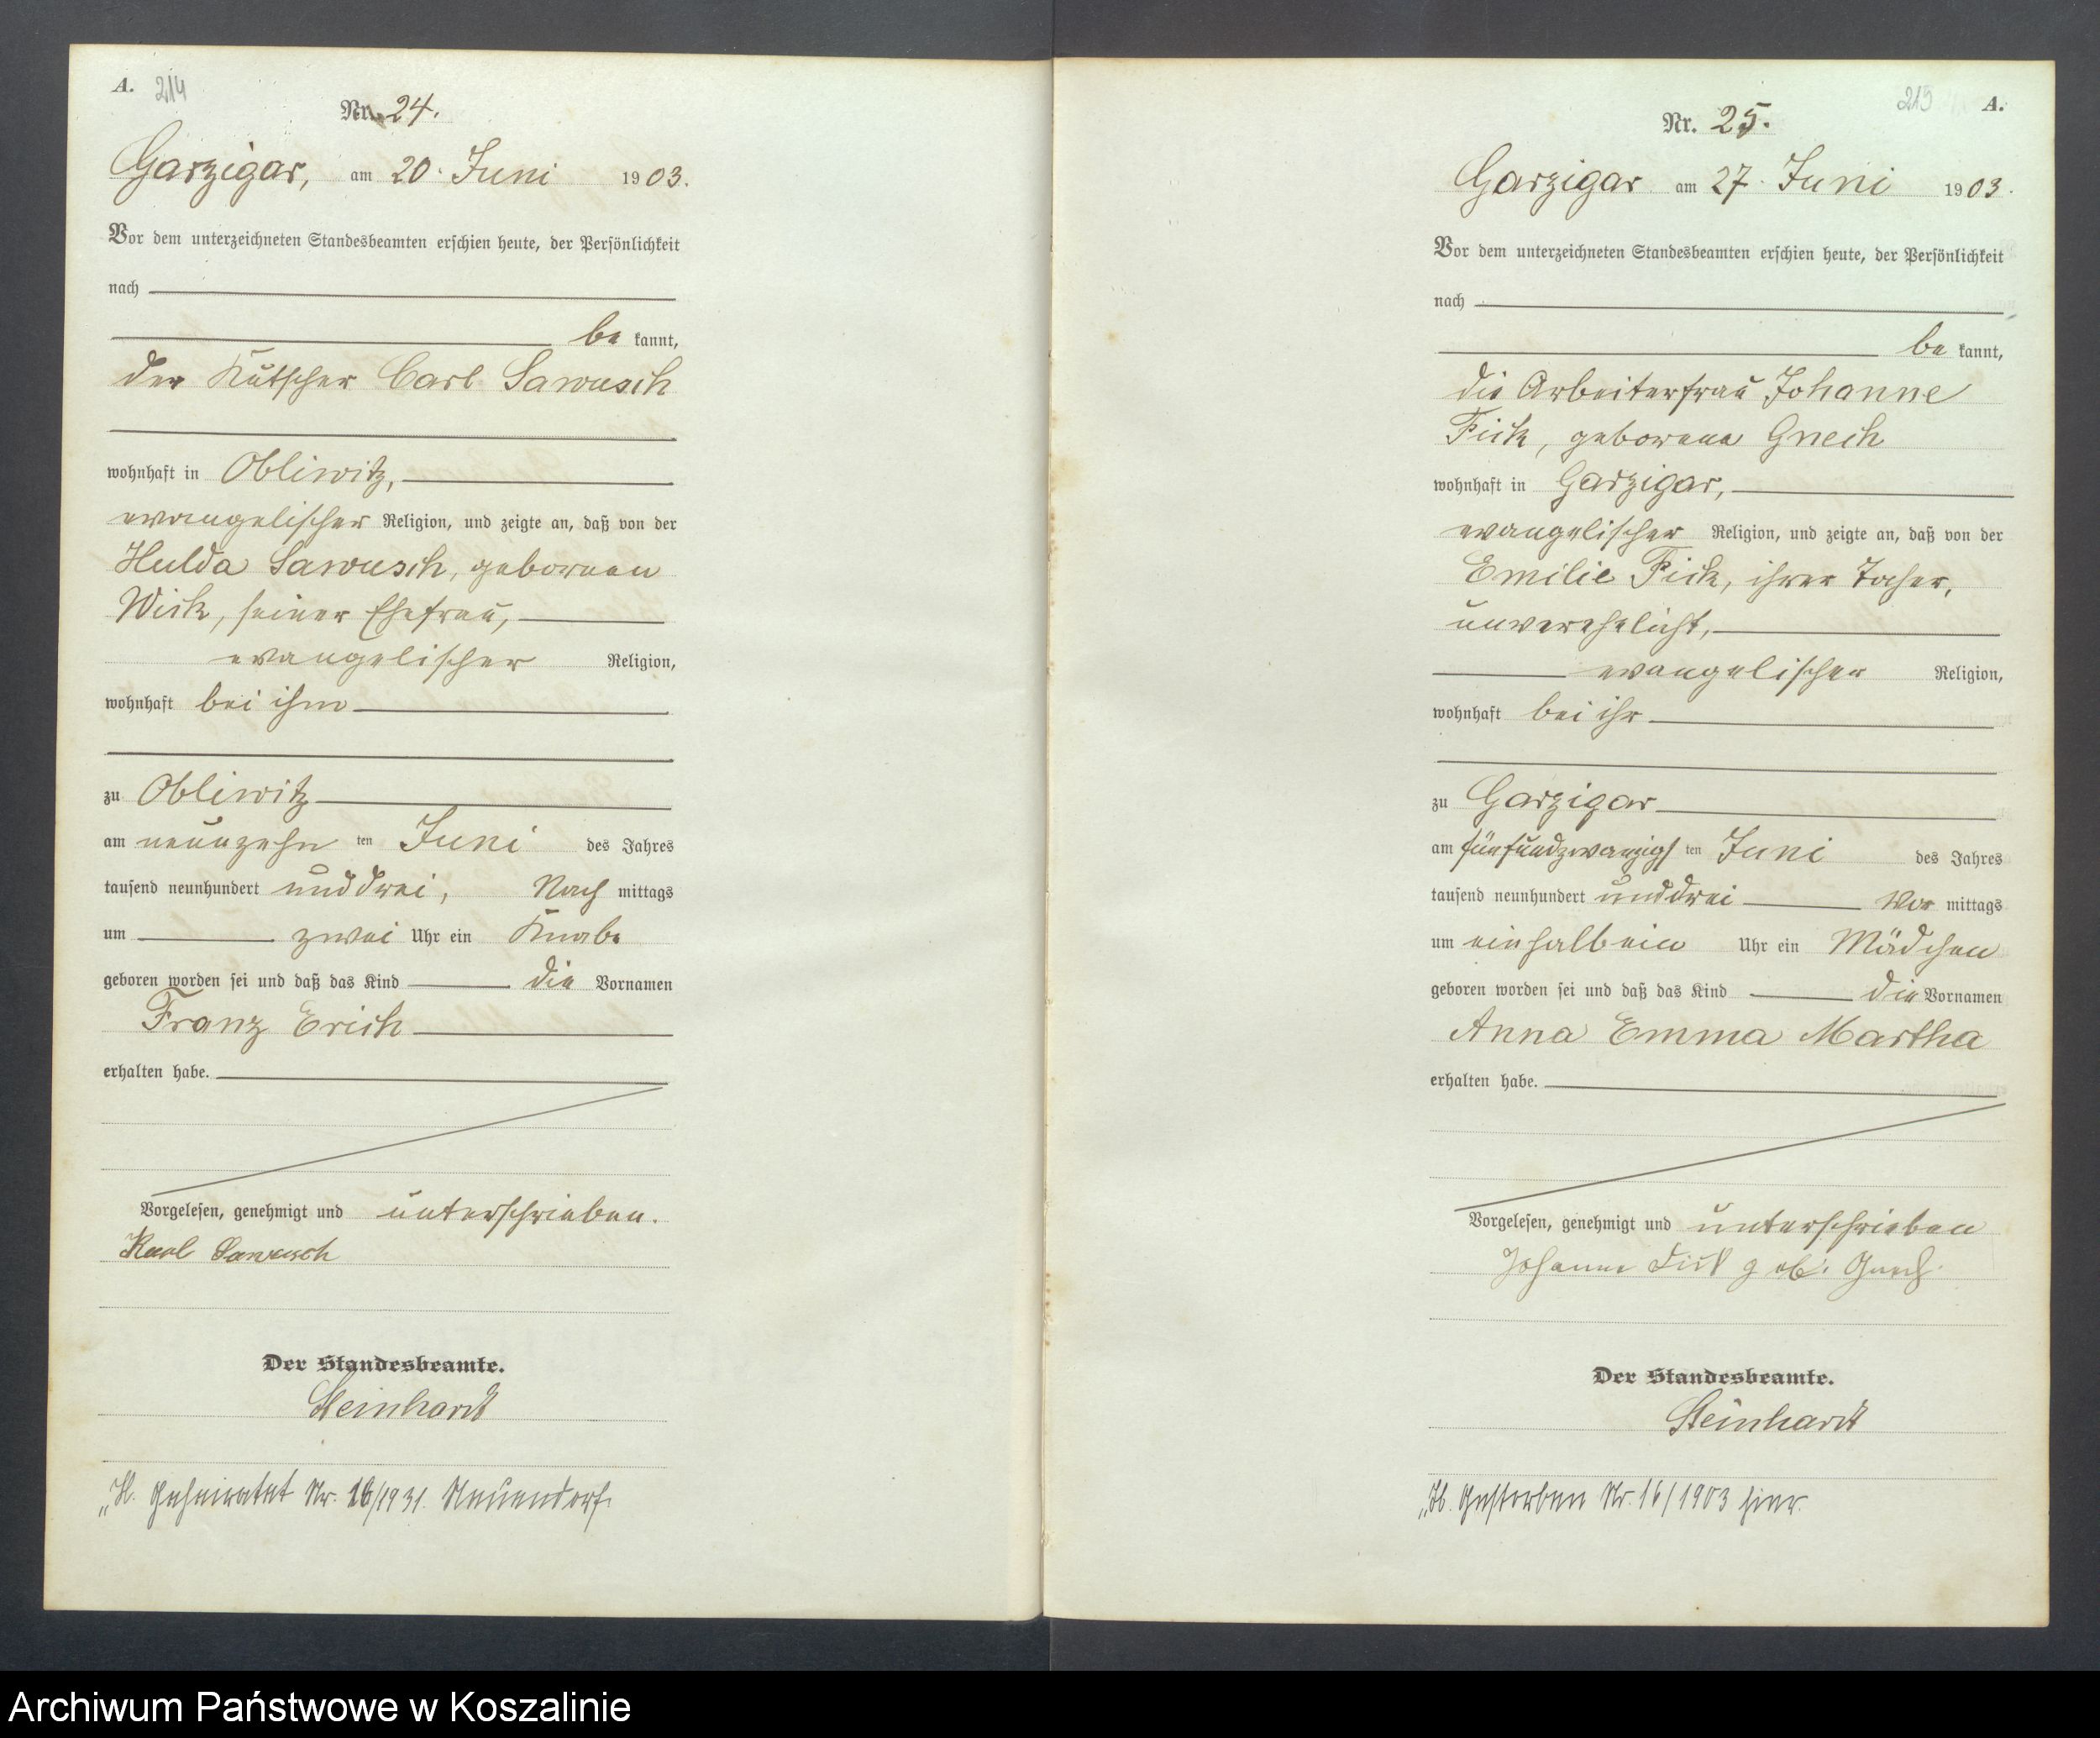 A. 214
Nr. 24.
Garzigar, am 20. Juni 1903.
Vor dem unterzeichneten Standesbeamten erschien heute, der Persönlichkeit
nach
be kannt,
der Kutscher Carl Sawusch
wohnhaft in Obliwitz,
evangelischer Religion, und zeigte an, daß von der
Hulda Sawusch, geborenen
Wick, seiner Ehefrau,
evangelischer Religion,
wohnhaft bei ihm
zu Obliwitz
am neunzehn ten Juni des Jahres
tausend neunhundert und drei, Nach mittags
um zwei Uhr ein Knabe
geboren worden sei und daß das Kind die Vornamen
Franz Erich
erhalten habe.
Vorgelesen, genehmigt und unterschrieben.
Karl Sawusch
Der Standesbeamte.
Steinhardt
„H. Geheiratet Nr. 16/1931. Neuendorf.
215 A.
Nr. 25.
Garzigar am 27. Juni 1903.
Vor dem unterzeichneten Standesbeamten erschien heute, der Persönlichkeit
nach
be kannt,
die Arbeiterfrau Johanne
Fick, geborene Gnech
wohnhaft in Garzigar,
evangelischer Religion, und zeigte an, daß von der
Emilie Fick, ihrer Tocher,
unverehelicht,
evangelischer Religion,
wohnhaft bei ihr
zu Garzigar
am fünfundzwanzigs ten Juni des Jahres
tausend neunhundert und drei Vor mittags
um einhalb ein Uhr ein Mädchen
geboren worden sei und daß das Kind die Vornamen
Anna Emma Martha
erhalten habe.
Vorgelesen, genehmigt und unterschrieben
Johanne Fick geb. Gnech
Der Standesbeamte.
Steinhardt
Gestorben Nr. 16/1903 hier.
Archiwum Państwowe w Koszalinie